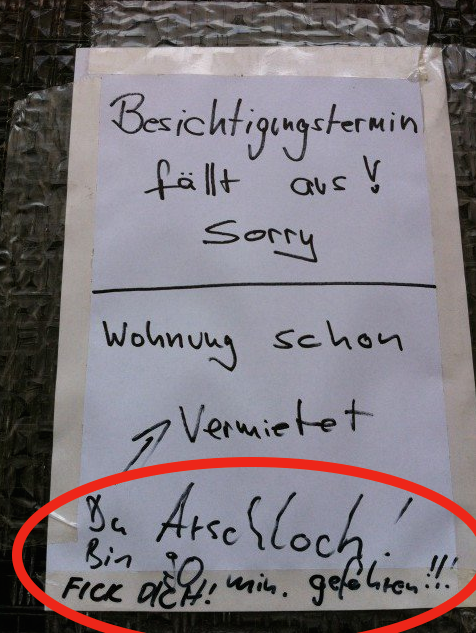 Besichtigungstermin
fällt aus!
Sorry
Wohnung schon
Vermietet
Du Arschloch!
Bin 30 min. gefahren!!!
FICK DICH!